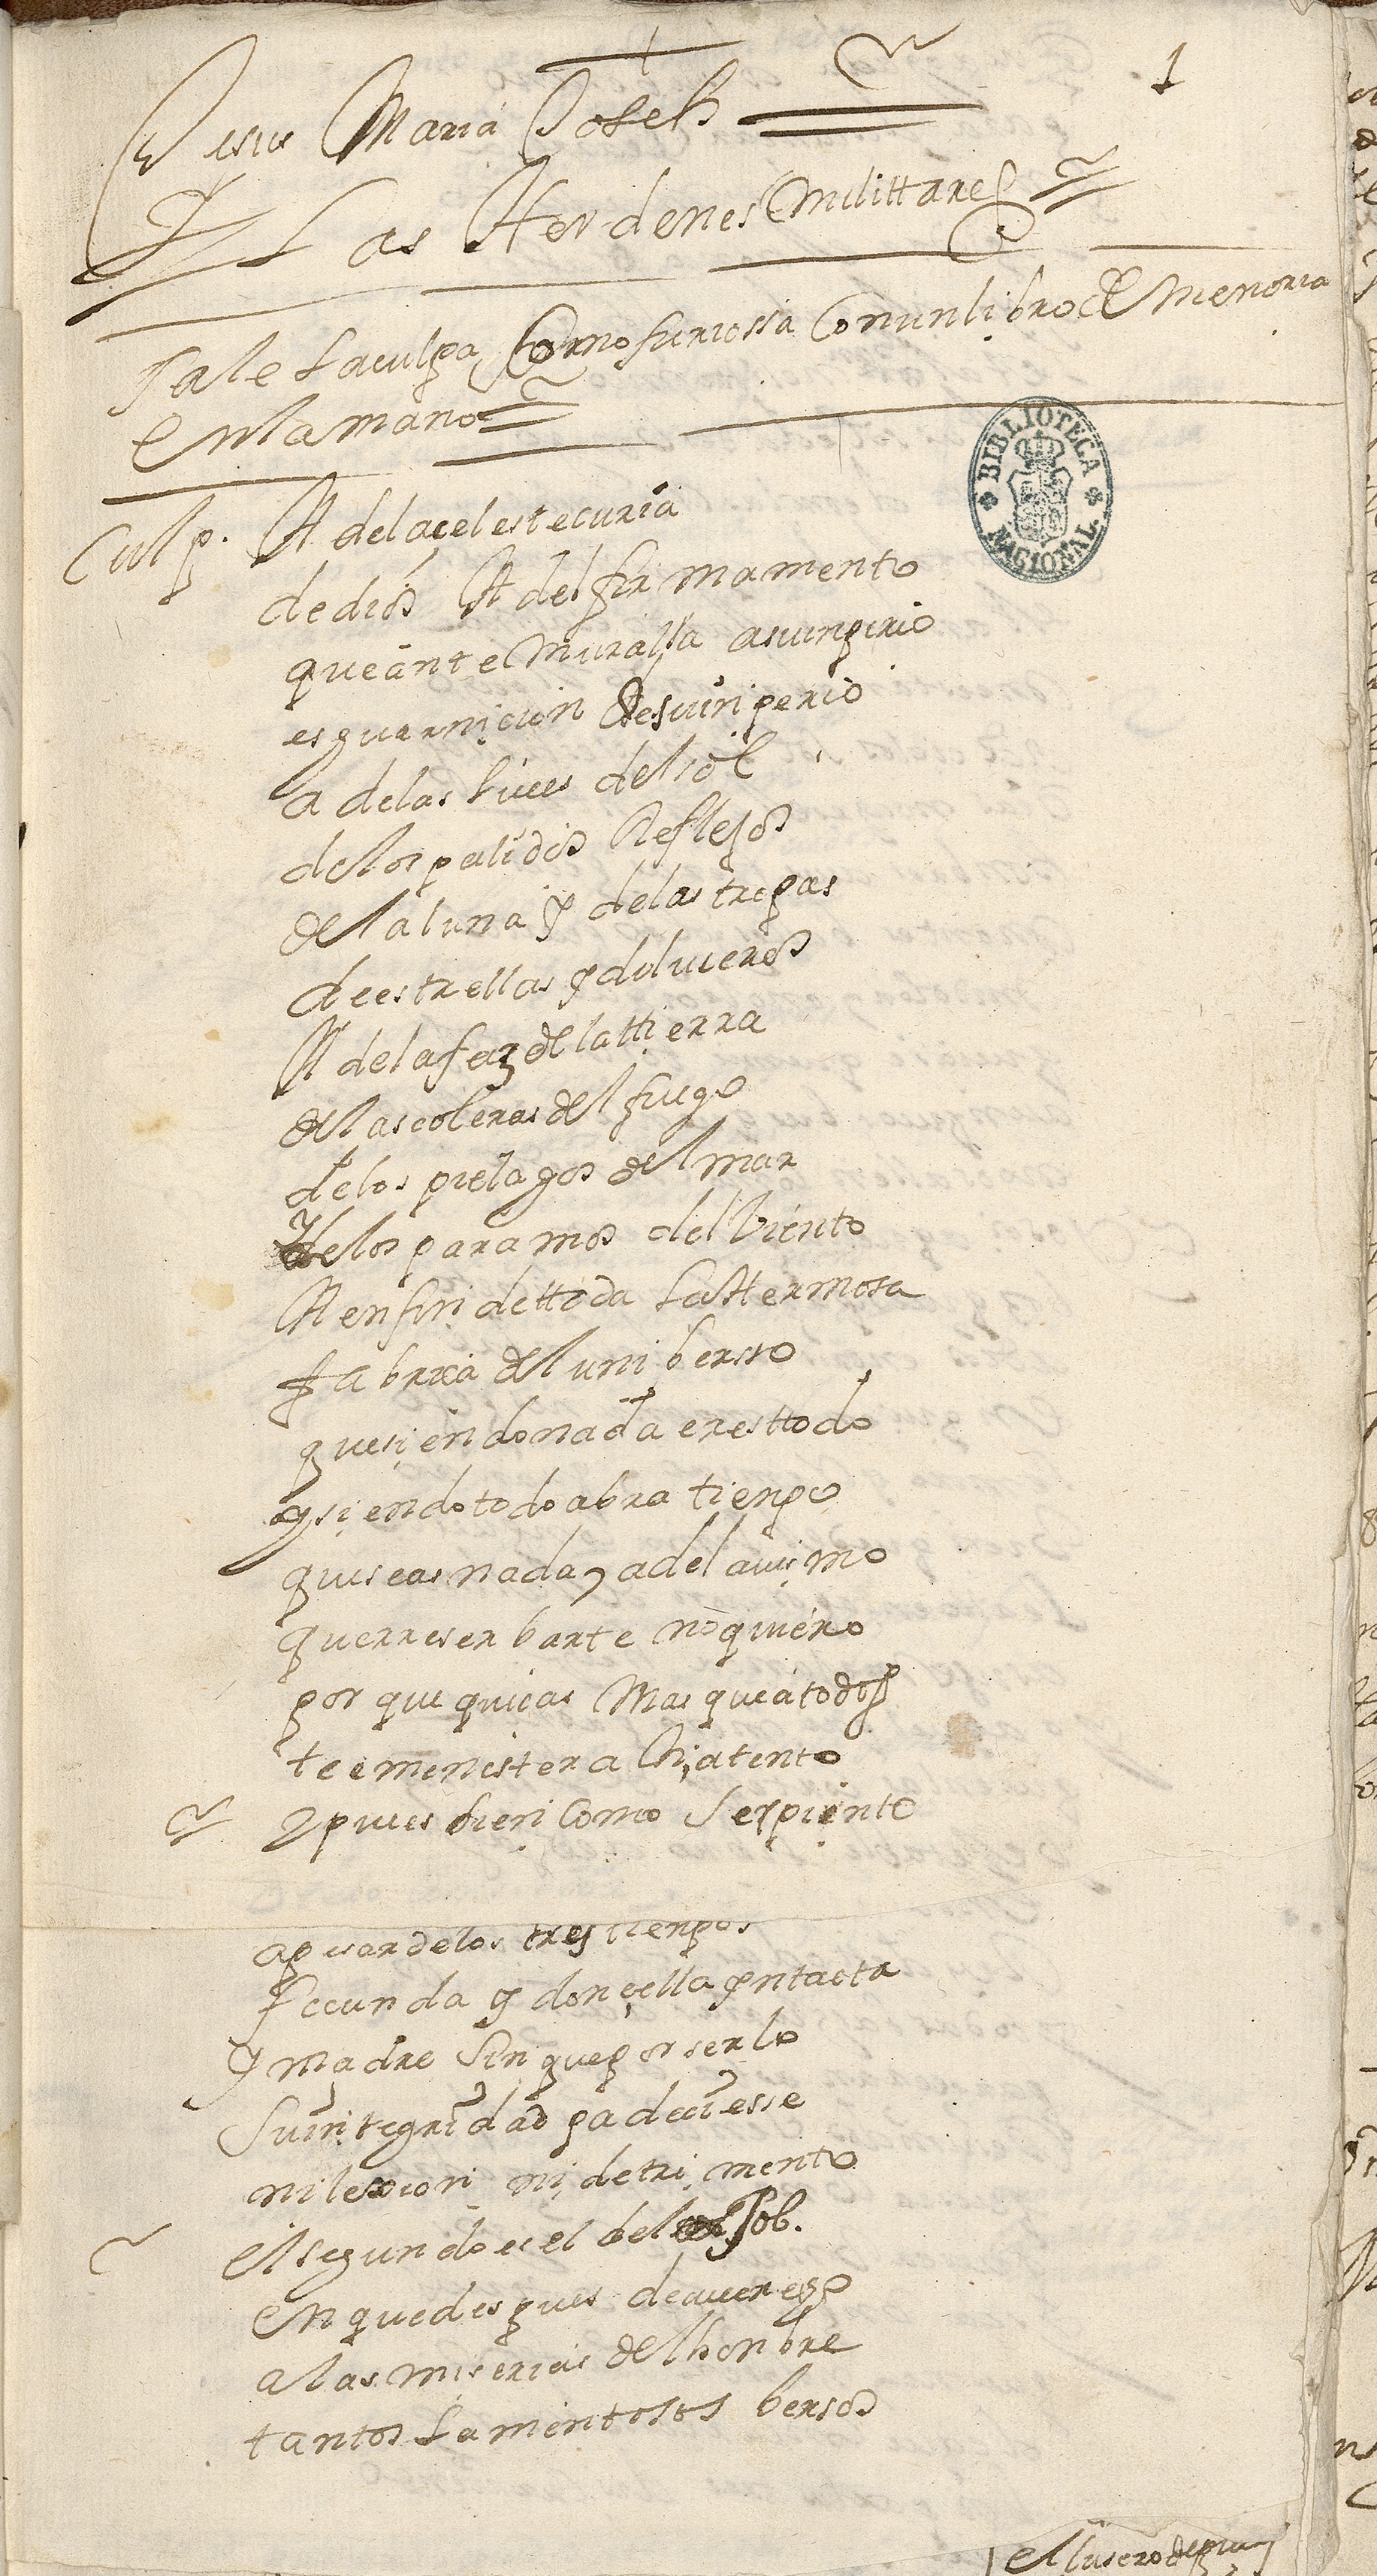 1
Jesus Maria Joseph
Las Hordenes Milittares
Sale La culpa Como furiossa Con un libro de Memoria
en la mano
Culp. A de la çeleste curia
de dios A del firmamento
que ante Muralla a su inpirio
es guarnicion de su inperio
a de las Luces del sol
de los palidos Reflejos
de la luna y de las tropas
de estrellas y de luceros
A de la faz de la ttierra
de las coleras del fuego
de los pielagos del mar
y de los paramos del Viento
A en fin de ttoda La Hermosa
fabrica del uniberso
que siendo nada eres ttodo
y siendo todo abra tienpo
que seas nada y a del
querreserbarte no quiero
por que quiças Mas que a todos
te e menester a ti, atento
y pues bien Como Serpiente
BIBLIOTECA NACIONAL
a pesar de los tres tienpos
fecunda y donçella yntacta
y madre Sin que por serlo
Su integridad padeciesse
ni lesion ni detrimento
el segundo es el del Job.
en que despues de
a las miserias del honbre
tantos Lamentosos bersos
el lusero de